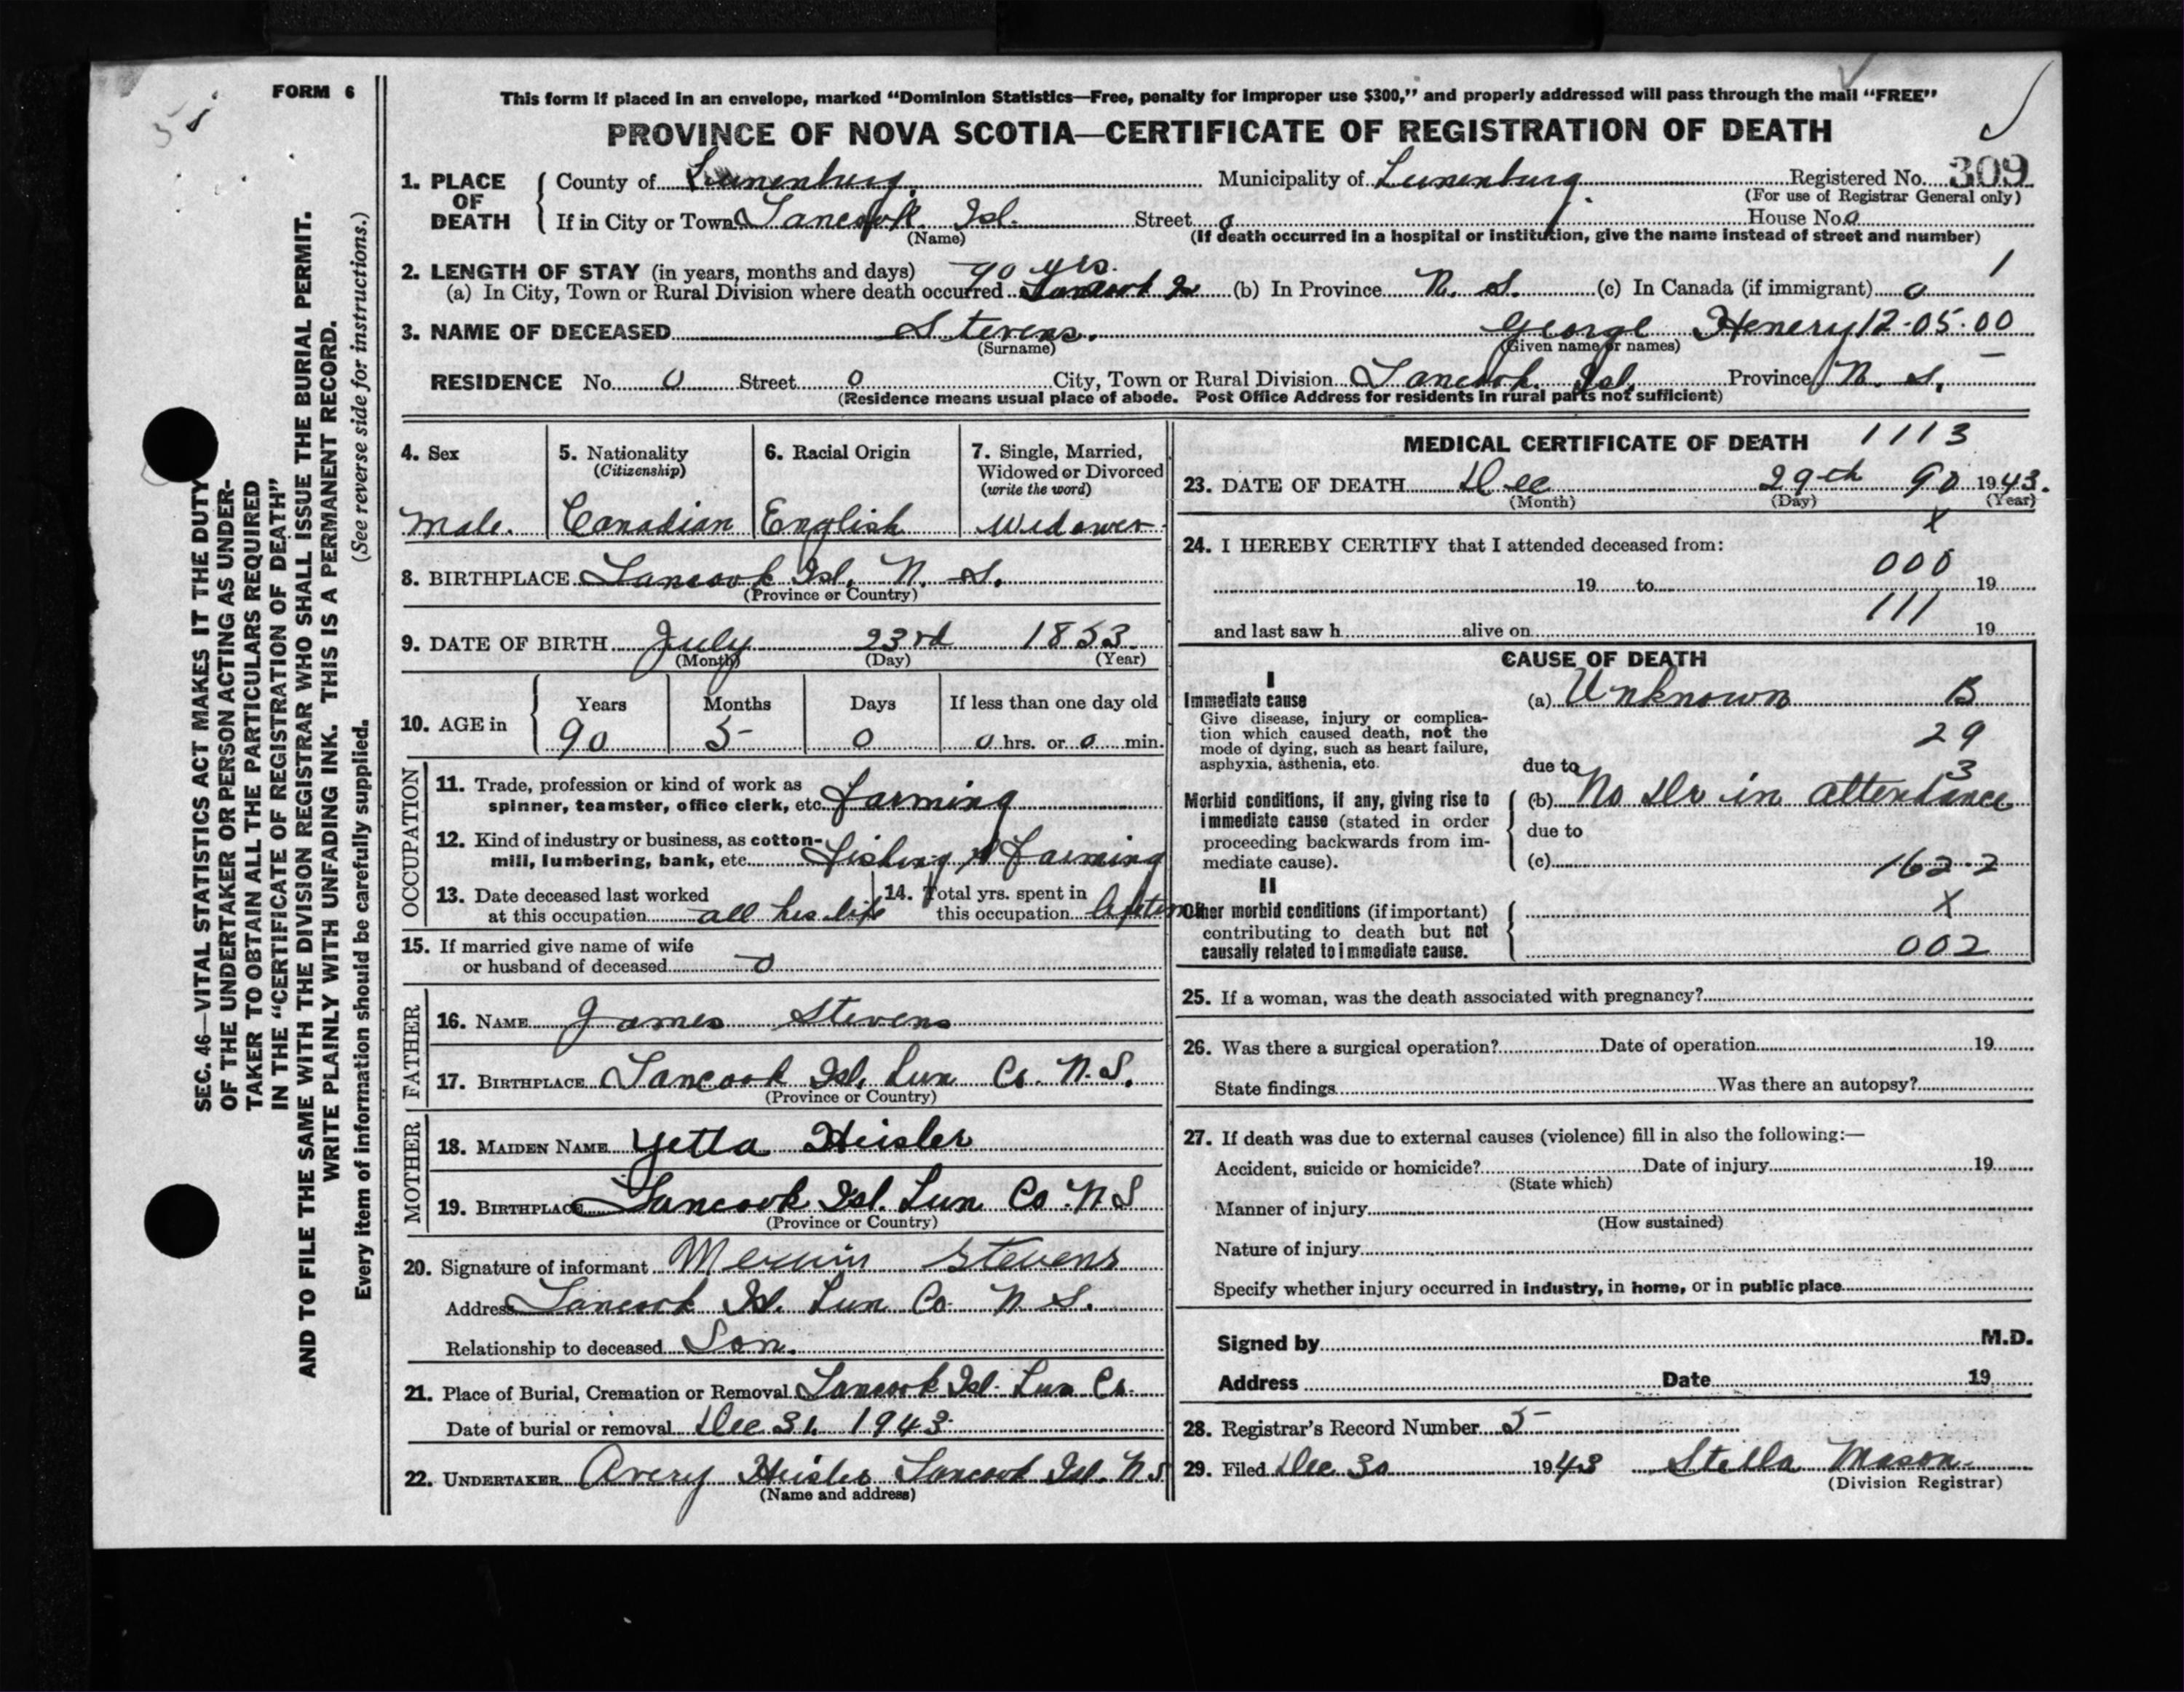 FORM 6
This form if placed in an envelope, marked “Dominion Statistics—Free, penalty for improper use $300,” and properly addressed will pass through the mail “FREE”
PROVINCE OF NOVA SCOTIA—CERTIFICATE OF REGISTRATION OF DEATH
1. PLACE OF DEATH
County of Lunenburg. Municipality of Lunenburg. Registered No. 309
(For use of Registrar General only)
If in City or Town Tancook Isl. Street 0 House No. 0
(Name) (If death occurred in a hospital or institution, give the name instead of street and number)
2. LENGTH OF STAY (in years, months and days) 90 yrs. 1
(a) In City, Town or Rural Division where death occurred Tancook Is (b) In Province N. S. (c) In Canada (if immigrant) 0
3. NAME OF DECEASED Stevens. George Henery 12-05-00
(Surname) (Given name or names)
RESIDENCE No. 0 Street 0 City, Town or Rural Division Tancook Isl. Province N. S.
(Residence means usual place of abode. Post Office Address for residents in rural parts not sufficient)
4. Sex
Male.
5. Nationality
(Citizenship)
Canadian
6. Racial Origin
English
7. Single, Married,
Widowed or Divorced
(write the word)
Widower
8. BIRTHPLACE Tancook Isl. N. S.
(Province or Country)
9. DATE OF BIRTH July 23rd 1853.
(Month) (Day) (Year)
10. AGE in
Years Months Days If less than one day old
90 5 0 0 hrs. or 0 min.
OCCUPATION
11. Trade, profession or kind of work as
spinner, teamster, office clerk, etc. farming
12. Kind of industry or business, as cotton-
mill, lumbering, bank, etc. fishing & farming
13. Date deceased last worked
at this occupation all his life
14. Total yrs. spent in
this occupation lifetime
15. If married give name of wife
or husband of deceased 0
FATHER
16. NAME James Stevens
17. BIRTHPLACE Tancook Isl. Lun Co. N.S.
(Province or Country)
MOTHER
18. MAIDEN NAME Yetta Heisler
19. BIRTHPLACE Tancook Isl. Lun Co. N S
(Province or Country)
20. Signature of informant Mervin Stevens
Address Tancook Isl. Lun Co. N S.
Relationship to deceased Son.
21. Place of Burial, Cremation or Removal Tancook Isl. Lun Co.
Date of burial or removal Dec 31. 1943
22. UNDERTAKER Avery Heisler Tancook Isl. N.S
(Name and address)
MEDICAL CERTIFICATE OF DEATH 1113
23. DATE OF DEATH Dec 29th 90 1943.
(Month) (Day) (Year)
X
24. I HEREBY CERTIFY that I attended deceased from:
000
19 to 19
111
and last saw h alive on 19
CAUSE OF DEATH
I
Immediate cause
Give disease, injury or complica-
tion which caused death, not the
mode of dying, such as heart failure,
asphyxia, asthenia, etc.
(a) Unknown B
29
due to
3
Morbid conditions, if any, giving rise to
immediate cause (stated in order
proceeding backwards from im-
mediate cause).
(b) No Dr in attendance
due to
(c) 162-2
II
Other morbid conditions (if important)
contributing to death but not
causally related to immediate cause.
X
002
25. If a woman, was the death associated with pregnancy?
26. Was there a surgical operation? Date of operation 19
State findings Was there an autopsy?
27. If death was due to external causes (violence) fill in also the following:—
Accident, suicide or homicide? Date of injury 19
(State which)
Manner of injury
(How sustained)
Nature of injury
Specify whether injury occurred in industry, in home, or in public place
Signed by M.D.
Address Date 19
28. Registrar's Record Number 5
29. Filed Dec 30 1943 Stella Mason.
(Division Registrar)
SEC. 46—VITAL STATISTICS ACT MAKES IT THE DUTY
OF THE UNDERTAKER OR PERSON ACTING AS UNDER-
TAKER TO OBTAIN ALL THE PARTICULARS REQUIRED
IN THE “CERTIFICATE OF REGISTRATION OF DEATH”
AND TO FILE THE SAME WITH THE DIVISION REGISTRAR WHO SHALL ISSUE THE BURIAL PERMIT.
WRITE PLAINLY WITH UNFADING INK. THIS IS A PERMANENT RECORD.
Every item of information should be carefully supplied. (See reverse side for instructions.)